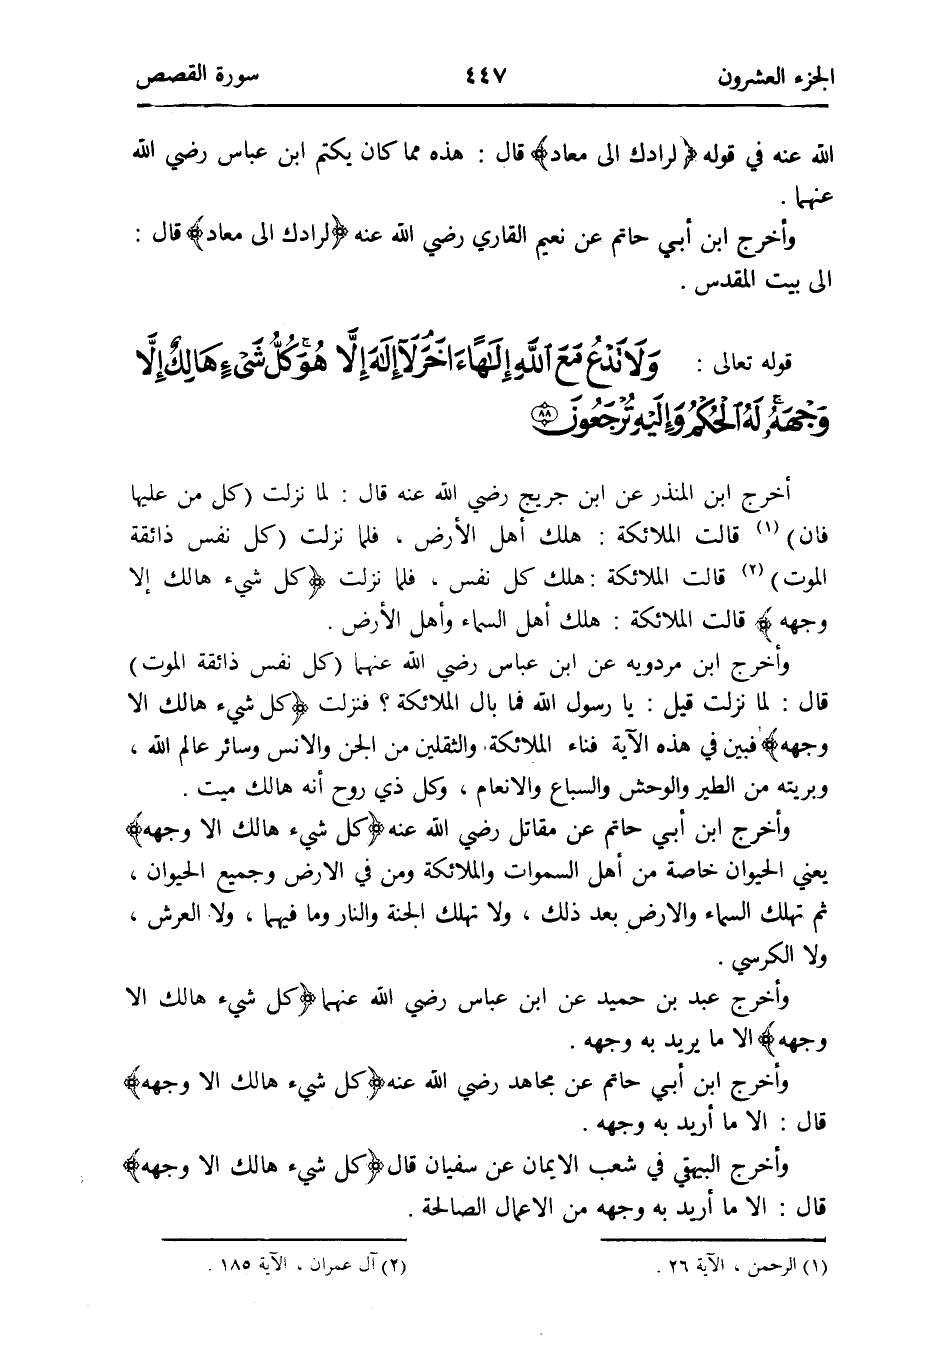 الجزء العشرون ٤٤٧ سورة القصص
الله عنه في قوله ﴿لرادك الى معاد﴾ قال : هذه مما كان يكتم ابن عباس رضي الله
عنهما .
وأخرج ابن أبي حاتم عن نعيم القاري رضي الله عنه ﴿لرادك الى معاد﴾ قال :
الى بيت المقدس .
قوله تعالى : وَلَا تَدْعُ مَعَ ٱللَّهِ إِلَٰهًا ءَاخَرَ لَآ إِلَٰهَ إِلَّا هُوَ ۚ كُلُّ شَىْءٍ هَالِكٌ إِلَّا
وَجْهَهُۥ ۚ لَهُ ٱلْحُكْمُ وَإِلَيْهِ تُرْجَعُونَ ٨٨
أخرج ابن المنذر عن ابن جريج رضي الله عنه قال : لما نزلت (كل من عليها
فان) (١) قالت الملائكة : هلك أهل الأرض ، فلما نزلت (كل نفس ذائقة
الموت) (٢) قالت الملائكة : هلك كل نفس ، فلما نزلت ﴿كل شيء هالك إلا
وجهه﴾ قالت الملائكة : هلك أهل السماء وأهل الأرض .
وأخرج ابن مردويه عن ابن عباس رضي الله عنهما (كل نفس ذائقة الموت)
قال : لما نزلت قيل : يا رسول الله فما بال الملائكة ؟ فنزلت ﴿كل شيء هالك الا
وجهه﴾ فبين في هذه الآية فناء الملائكة، والثقلين من الجن والانس وسائر عالم الله ،
وبريته من الطير والوحش والسباع والانعام ، وكل ذي روح أنه هالك ميت .
وأخرج ابن أبي حاتم عن مقاتل رضي الله عنه ﴿كل شيء هالك الا وجهه﴾
يعني الحيوان خاصة من أهل السموات والملائكة ومن في الارض وجميع الحيوان ،
ثم تهلك السماء والارض بعد ذلك ، ولا تهلك الجنة والنار وما فيهما ، ولا العرش ،
ولا الكرسي .
وأخرج عبد بن حميد عن ابن عباس رضي الله عنهما ﴿كل شيء هالك الا
وجهه﴾ الا ما يريد به وجهه .
وأخرج ابن أبي حاتم عن مجاهد رضي الله عنه ﴿كل شيء هالك الا وجهه﴾
قال : الا ما أريد به وجهه .
وأخرج البيهقي في شعب الايمان عن سفيان قال ﴿كل شيء هالك الا وجهه﴾
قال : الا ما أريد به وجهه من الاعمال الصالحة .
(١) الرحمن ، الآية ٢٦ . (٢) آل عمران ، الآية ١٨٥ .